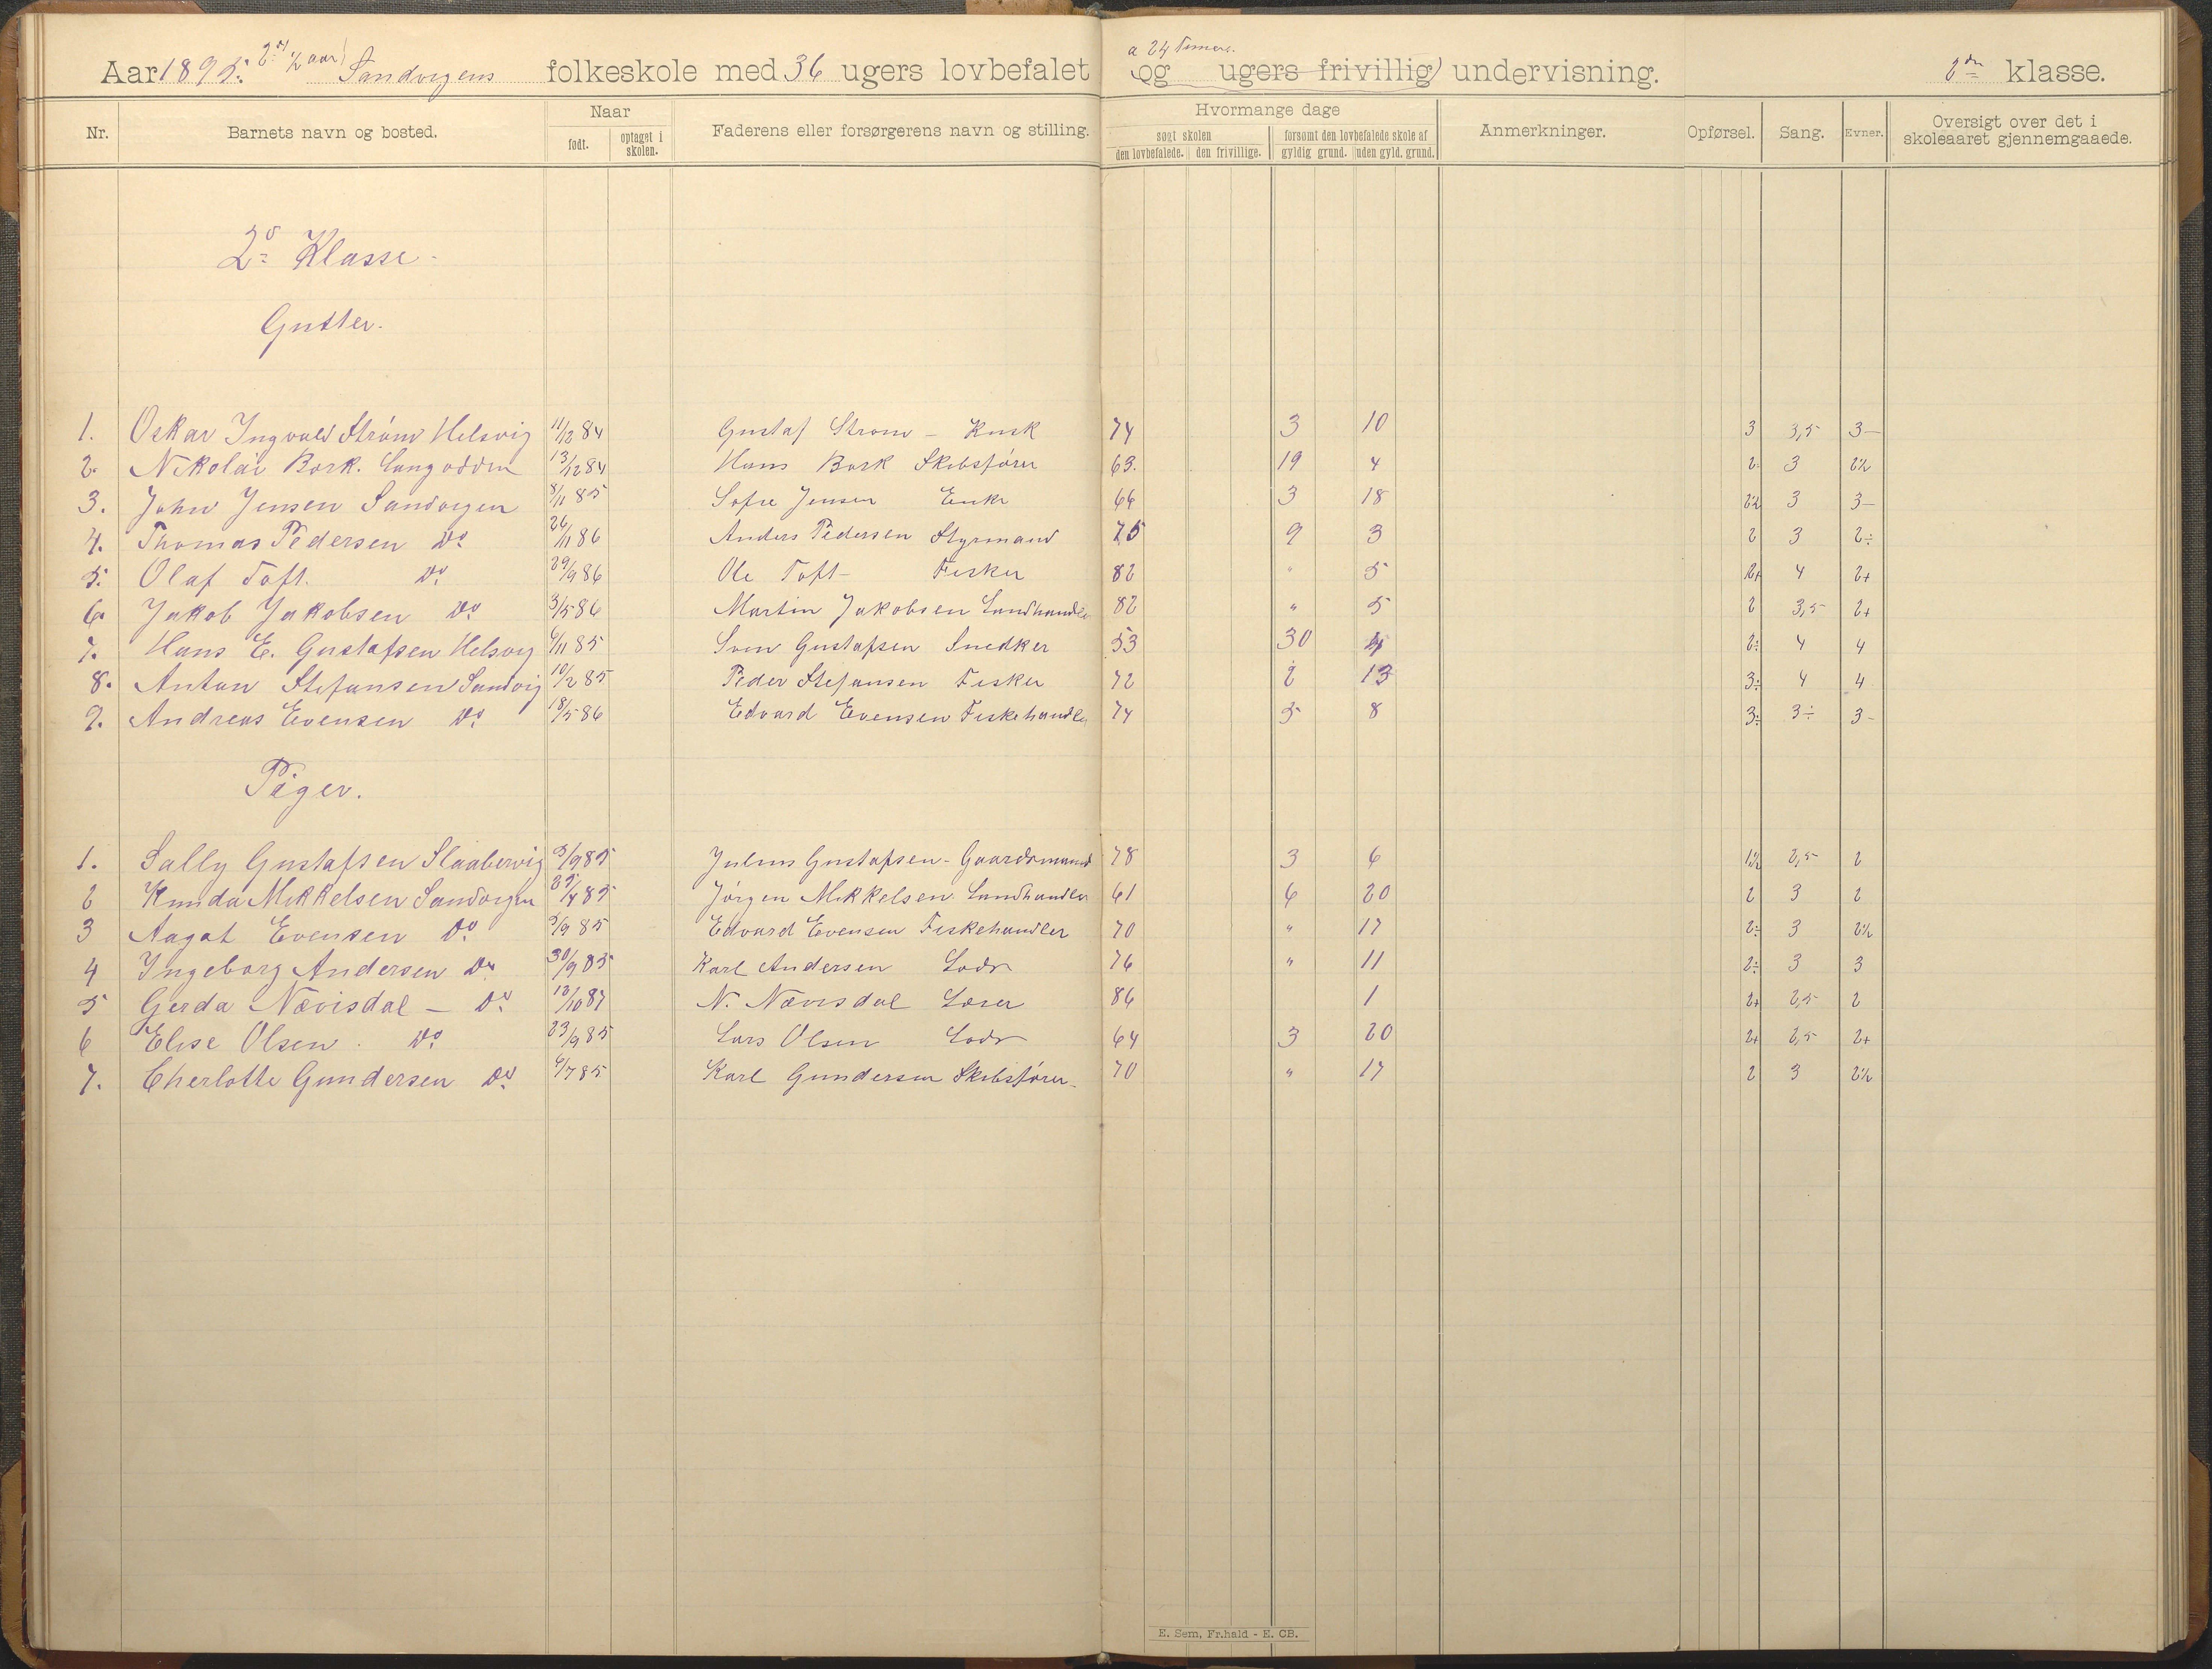 Aar 1895. 2det ½ aar) Sandvigens folkeskole med 36 ugers lovbefalet a 24 Timer. og ugers frivillig) undervisning. 2den klasse.
Nr. Barnets navn og bosted. Naar født. optaget i skolen. Faderens eller forsørgerens navn og stilling. Hvormange dage søgt skolen den lovbefalede. den frivillige. forsømt den lovbefalede skole af gyldig grund. uden gyld. grund. Anmerkninger. Opførsel. Sang. Evner. Oversigt over det i skoleaaret gjennemgaaede.
2den Klasse
Gutter.
1. Oskar Ingvald Strøm Helsvig 11/12 84 Gustaf Strøm – Kusk 74 3 10 3 3,5 3–
2. Nikolai Bork. Langodden 13/12 84 Hans Bork Skibsfører 63. 19 4 2 3 2½
3. John Jensen Sandvigen 8/11 85 Sofie Jensen Enke 66 3 18 2½ 3 3–
4. Thomas Pedersen Do 26/11 86 Anders Pedersen Styrmand 75 9 3 2 3 2÷
5. Olaf Toft. Do 29/9 86 Ole Toft – Fisker 82 " 5 2+ 4 2+
6. Jakob Jakobsen Do 3/5 86 Martin Jakobsen Landhandler 82 " 5 2 3,5 2+
7. Hans E. Gustafsen Helsvig 6/11 85 Sven Gustafsen Snedker 53 30 4 2÷ 4 4
8. Anton Stefansen Sandvig 10/2 85 Peder Stefansen Fisker 72 2 13 3÷ 4 4
9. Andreas Evensen Do 18/5 86 Edvard Evensen Fiskehandler 74 5 8 3÷ 3÷ 3–
Piger.
1. Sally Gustafsen Slaabervig 3/9 85 Julius Gustafsen – Gaardsmand 78 3 6 1½ 2,5 2
2 Kunda Mikkelsen Sandvigen 25/4 85 Jørgen Mikkelsen Landhandler 61 6 20 2 3 2
3 Aagot Evensen Do 5/9 85 Edvard Evensen Fiskehandler 70 " 17 2÷ 3 2½
4 Ingeborg Andersen Do 30/9 85 Karl Andersen Lods 76 " 11 2÷ 3 3
5 Gerda Nævisdal – Do 10/10 87 N. Nævisdal Lærer 86 1 2+ 2,5 2
6 Elise Olsen. Do 23/9 85 Lars Olsen Lods 64 3 20 2+ 2,5 2+
7. Cherlotte Gundersen Do 6/7 85 Karl Gundersen Skibsfører. 70 " 17 2 3 2½
E. Sem, Fr.hald - E. CB.